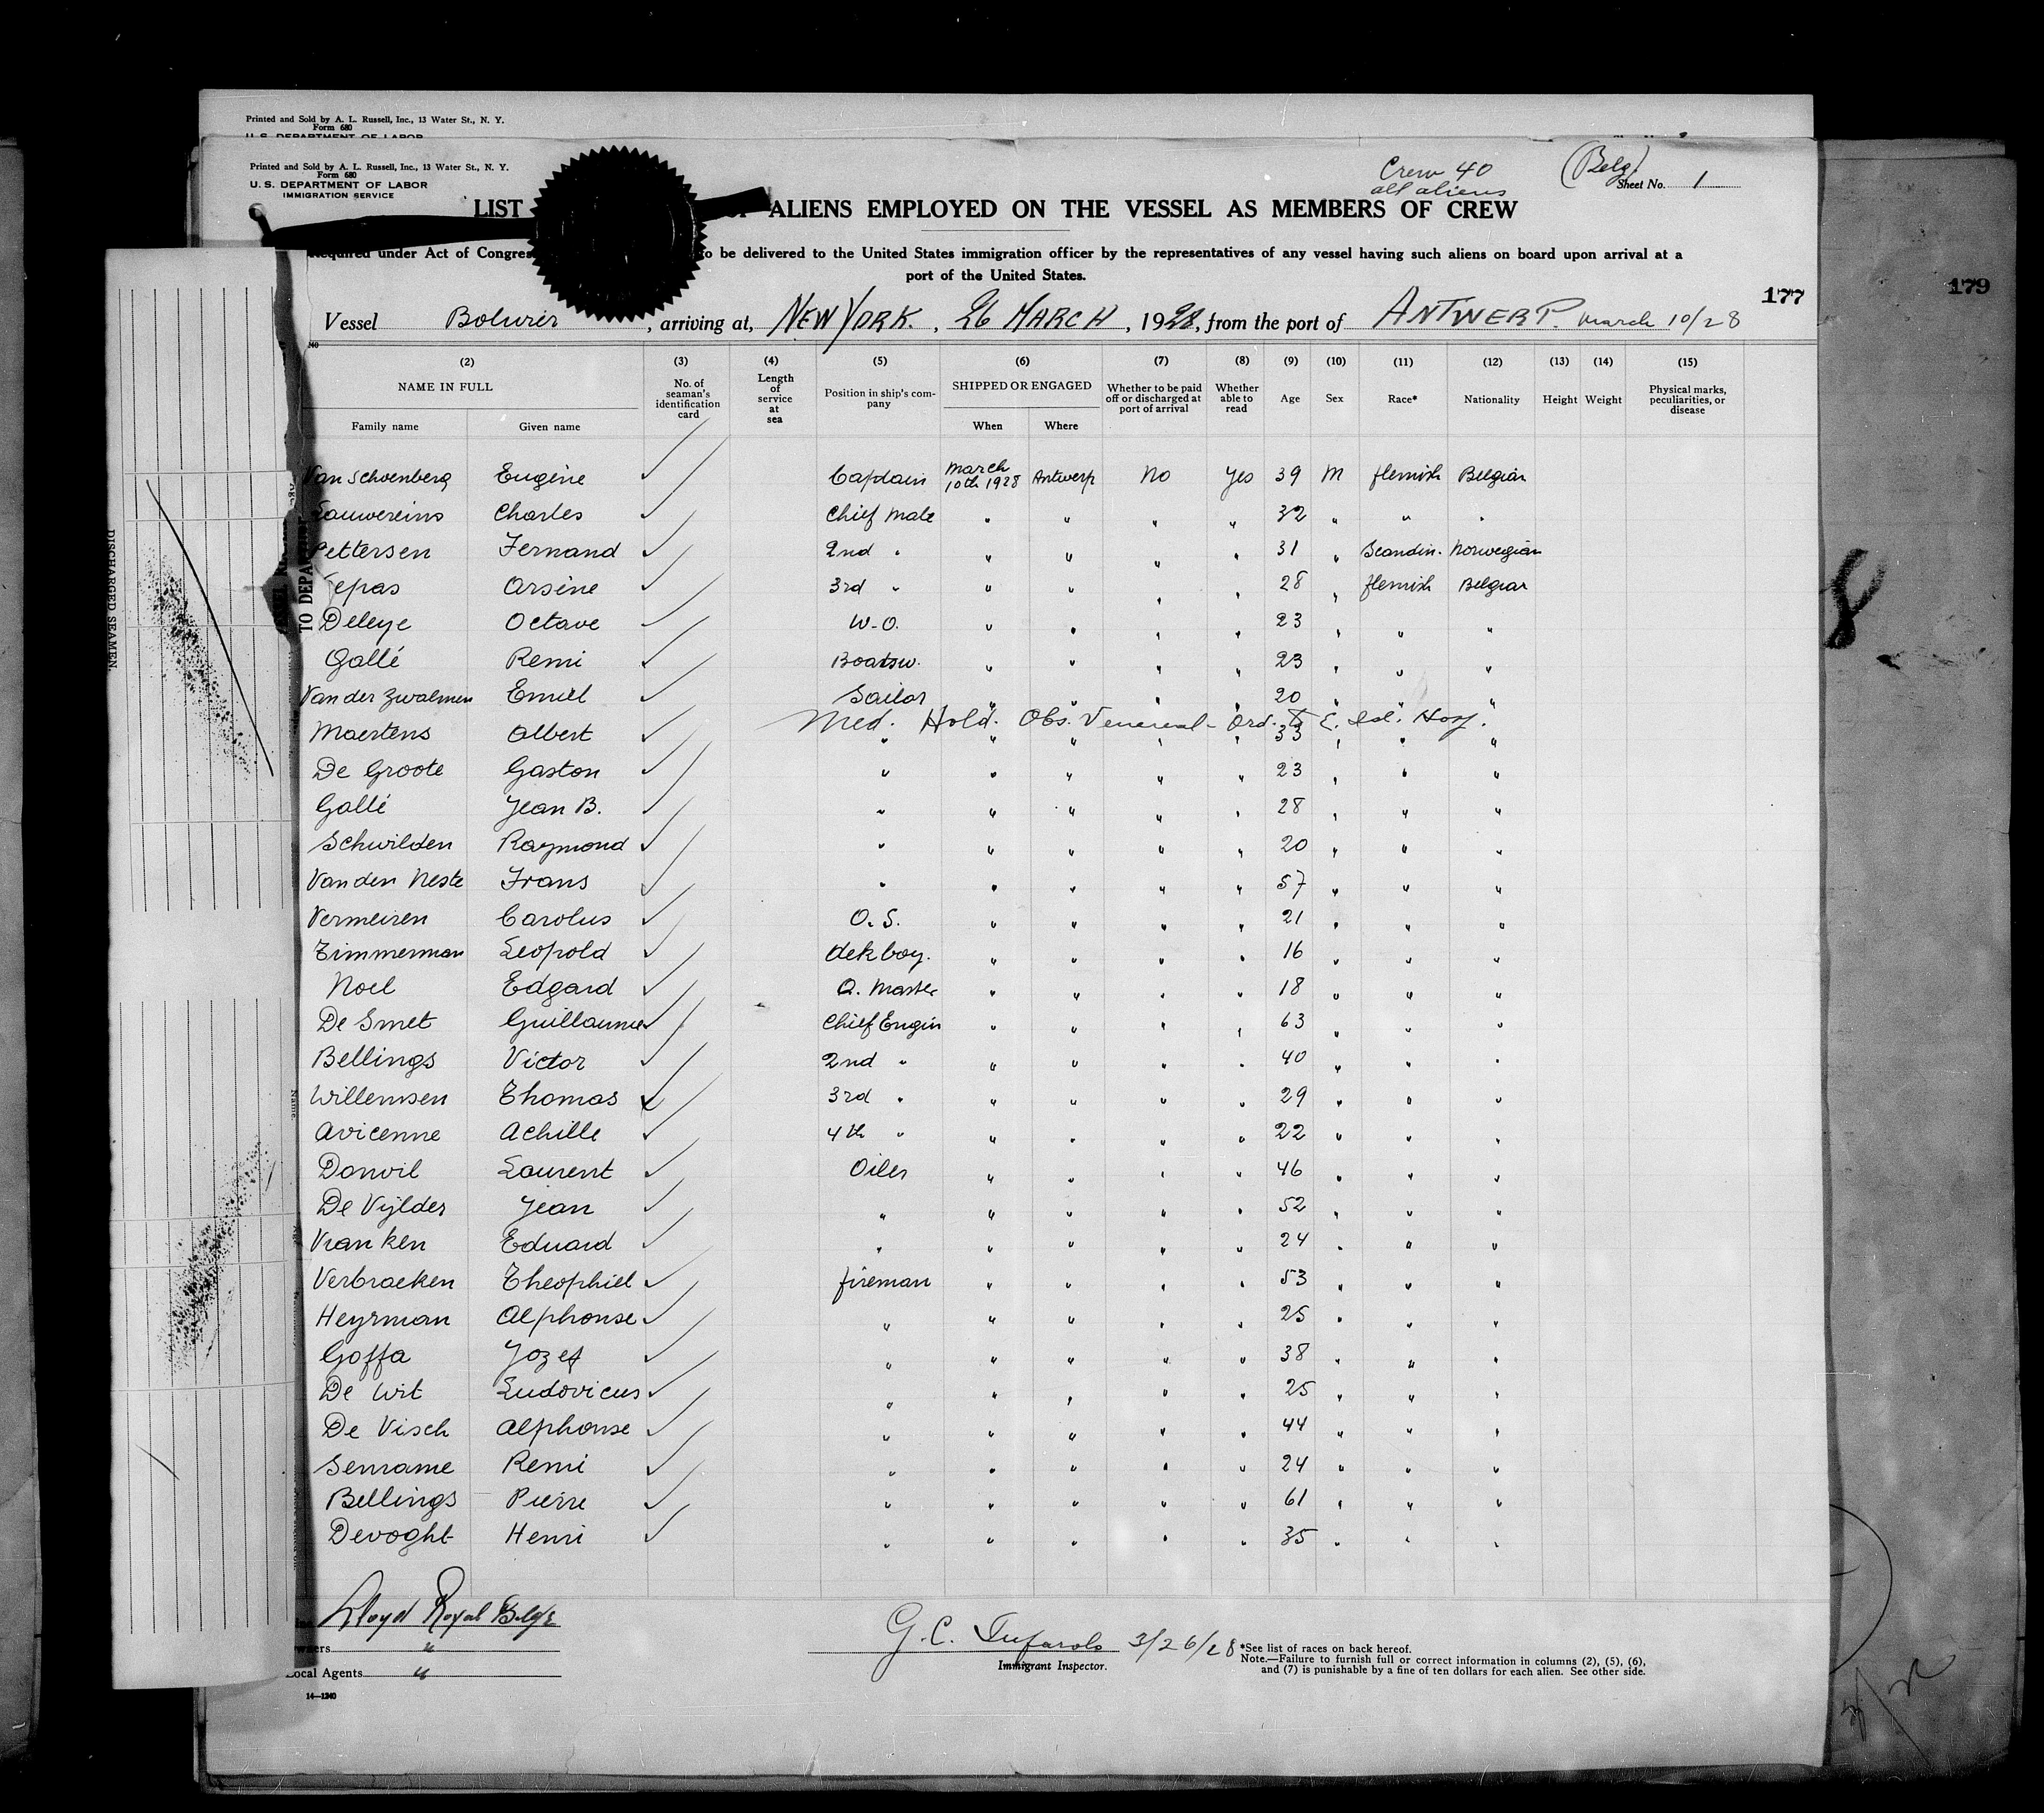 Printed and Sold by A. L. Russell, Inc., 13 Water St., N. Y.
Form 680
U. S. DEPARTMENT OF LABOR
Printed and Sold by A. L. Russell, Inc., 13 Water St., N. Y.
Form 680
U. S. DEPARTMENT OF LABOR
IMMIGRATION SERVICE
Crew 40
all aliens
(Belg)
Sheet No. 1
LIST ALIENS EMPLOYED ON THE VESSEL AS MEMBERS OF CREW
Required under Act of Congress to be delivered to the United States immigration officer by the representatives of any vessel having such aliens on board upon arrival at a
port of the United States.
177
179
Vessel , arriving at, NEW YORK. , 26 MARCH , 1928, from the port of ANTWERP. March 10/28
(2) (3) (4) (5) (6) (7) (8) (9) (10) (11) (12) (13) (14) (15)
NAME IN FULL
Family name Given name
No. of seaman's identification card
Length of service at sea
Position in ship's company
SHIPPED OR ENGAGED
When Where
Whether to be paid off or discharged at port of arrival
Whether able to read
Age Sex Race* Nationality Height Weight
Physical marks, peculiarities, or disease
Van Schoenberg Eugène Captain March 10th 1928 Antwerp No Yes 39 M flemish Belgian
Charles Chief Mate " " " " 32 " " "
Pettersen Fernand 2nd " " " " " 31 " Scandin. Norwegian
Arsène 3rd " " " " " 28 " flemish Belgian
Deleye Octave W.O. " " " " 23 " " "
Gallé Remi Boatsw. " " " " 23 " " "
Van der Zwalmen Emiel Sailor " " " " 20 " " "
Med. Hold. Obs. Venereal - Ord. To E. Isl. Hosp.
Maertens Albert " " " " " 33 " " "
De Groote Gaston " " " " " 23 " " "
Gallé Jean B. " " " " " 28 " " "
Schwilden Raymond " " " " " 20 " " "
Van den Neste Frans " " " " " 57 " " "
Vermeiren Carolus O. S. " " " " 21 " " "
Timmerman Leopold dekboy. " " " " 16 " " "
Noel Edgard Q. Master " " " " 18 " " "
De Smet Guillaume Chief Engin " " " " 63 " " "
Bellings Victor 2nd " " " " " 40 " " "
Willemsen Thomas 3rd " " " " " 29 " " "
Avicenne Achille 4th " " " " " 22 " " "
Danvil Laurent Oiler " " " " 46 " " "
De Vijlder Jean " " " " " 52 " " "
Vranken Eduard " " " " " 24 " " "
Verbraeken Theophiel fireman " " " " 53 " " "
Heyrman Alphonse " " " " " 25 " " "
Goffa Jozef " " " " " 38 " " "
De Wit Ludovicus " " " " " 25 " " "
De Visch Alphonse " " " " " 44 " " "
Senrame Remi " " " " " 24 " " "
Bellings Pierre " " " " " 61 " " "
Devoght Henri " " " " " 35 " " "
Lloyd Royal Belge
"
Local Agents "
14—1240
G. C. 3/26/28
Immigrant Inspector.
*See list of races on back hereof.
Note.—Failure to furnish full or correct information in columns (2), (5), (6),
and (7) is punishable by a fine of ten dollars for each alien. See other side.
DISCHARGED SEAMEN.
TO DEPA
Name.
8